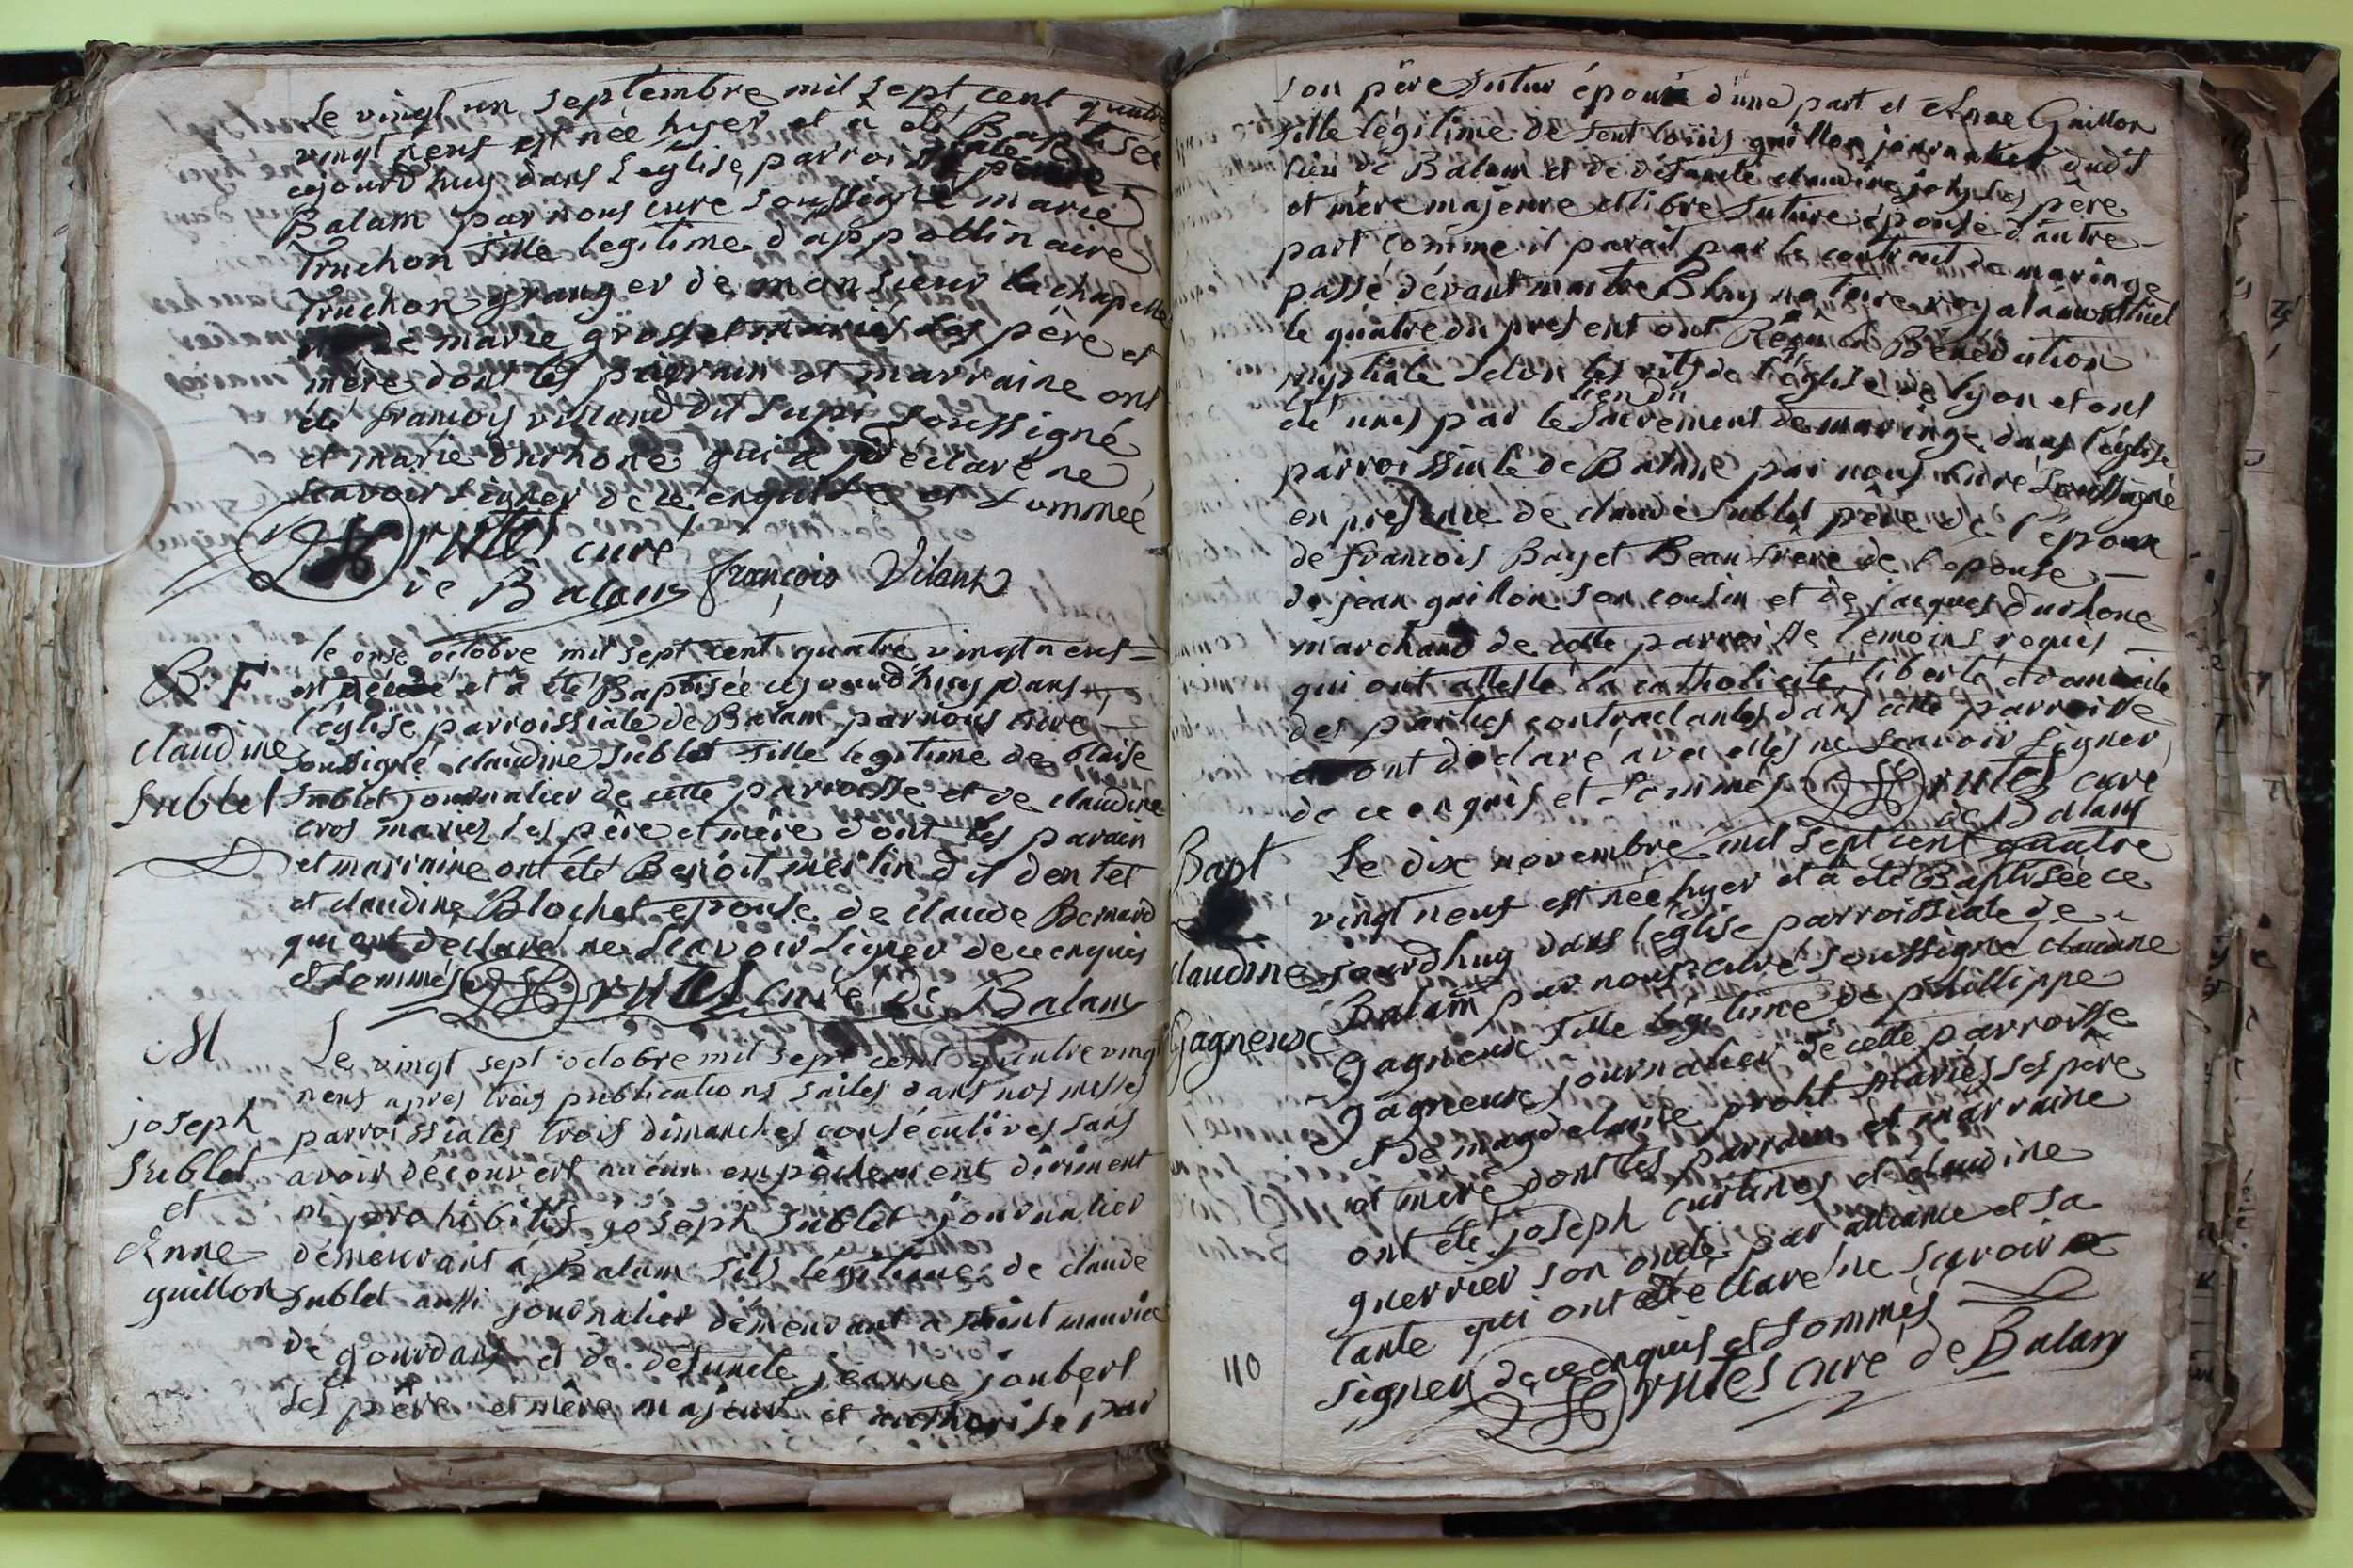 Le vingt un septembre mil sept cent quatre
vingt neuf est née hyer et à été Baptisée
ajourd'huy dans L'eglise parroissiale de
Balam par nous curé soussigné marie
Truchon fille legitime d'appollinaire
Truchon granger de monsieur la chapelle
de marie grosset mariés ses père et
mère dont les parrain et marraine ont
été francois villand dit supi soussigné
et marie durhone qui a déclaré ne
scavoir signer de ce enquise et sommée
Brutel curé
de Balam françois Vilant
le onse octobre mil sept cent quatre vingt neuf
B. F est née et à été Baptisée ajourd'huy dans
l'église parroissiale de Balam par nous curé
claudine soussigné claudine sublet fille legitime de blaise
sublet sublet journalier de cette parroisse et de claudine
cros mariés ses père et mère dont les parain
et marraine ont été Benoit merlin dit dentet
et claudine Blochet epouse de claude Bernard
qui ont déclaré ne scavoir signer de ce enquis
et sommés Brutel curé de Balam
M Le vingt sept octobre mil sept cent quatre vingt
neuf apres trois publications faites dans nos messes
joseph parroissiales trois dimanches consécutives sans
sublet avoir découvert aucun empêchement diriment
et ni prohibitif joseph sublet journalier
Anne démeurant à Balam fils légitime de claude
guillon sublet aussi journalier démeurant a saint maurice
de gourdans et de défuncte jeanne joubert
ses père et mère majeur et authorisé par
son père futur époux d'une part et Anne Guillon
fille légitime de feut louis guillon journalier dudit
lieu de Balam et de défuncte claudine joly ses père
et mère majeure et libre future épouse d'autre
part comme il paroit par le contrait de mariage
passé dévant maitre Bluy notoire royal à
le quatre du present ont Reçu la Bénédiction
nuptiale selon les rits de l'église de lyon et ont
lien du
été unis par le sacrement de mariage dans l'église
parroissiale de Balam par nous curé soussigné
en presence de claude sublet père de l'époux
de francois Bayet Beaufrère de l'epouse
de jean guillon son cousin et de jacques durhone
marchand de cette parroisse témoins requis
qui ont attesté la catholicité, liberté et domicile
des parties contractantes dans cette parroisse
et ont déclaré avec elles ne scavoir signer
de ce enquis et sommés Brutel curé
de Balam
Bapt Le dix novembre mil sept cent quatre
vingt neuf est née hyer et à été Baptisée ce
claudine jourd'huy dans l'église parroissiale de
Balam par nous curé soussigné claudine
Gagneux gagneux fille legitime de phillippe
gagneux journalier de cette parroisse
et de magdelaine prost mariés ses père
et mere dont les parrain et marraine
ont été joseph curtines et claudine
guerrier son oncle par alliance et sa
tante qui ont déclaré ne scavoir
signer de ce enquis et sommés
110 Brutel curé de Balam